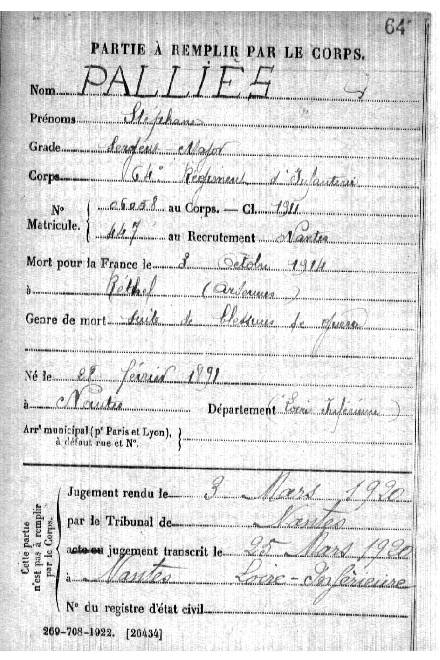 64
PARTIE À REMPLIR PAR LE CORPS.
Nom PALLIÈS
Prénoms Stéphane
Grade Sergent Major
Corps 64e Régiment d'Infanterie
No Matricule. { 06058 au Corps. — Cl. 1911
447 au Recrutement Nantes
Mort pour la France le 8 Octobre 1914
à Réthel (Ardennes)
Genre de mort suite de blessures de guerre
Né le février 1891
à Nantes Département (Loire Inférieure)
Arrt municipal (pr Paris et Lyon),
à défaut rue et No.
Cette partie n'est pas à remplir par le Corps.
Jugement rendu le 3 Mars 1920
par le Tribunal de Nantes
acte ou jugement transcrit le 25 Mars 1920
à Nantes Loire-Inférieure
No du registre d'état civil
269-708-1922. [26434]